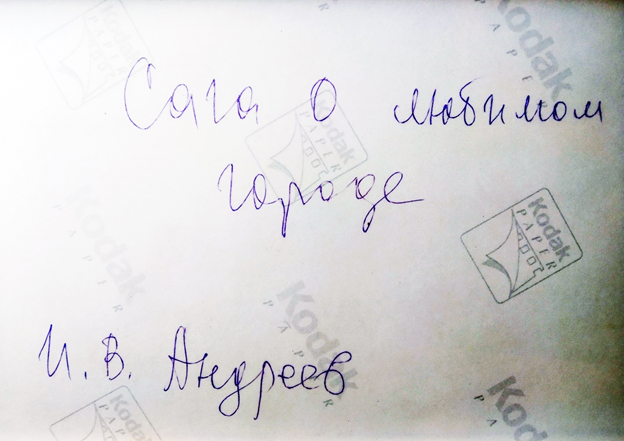 Сага о любимом
городе
И. В. Андреев
Kodak
PAPER
Kodak
PAPER
Kodak
PAPER
Kodak
PAPER
Kodak
PAPER
Kodak
PAPER
Kodak
PAPER